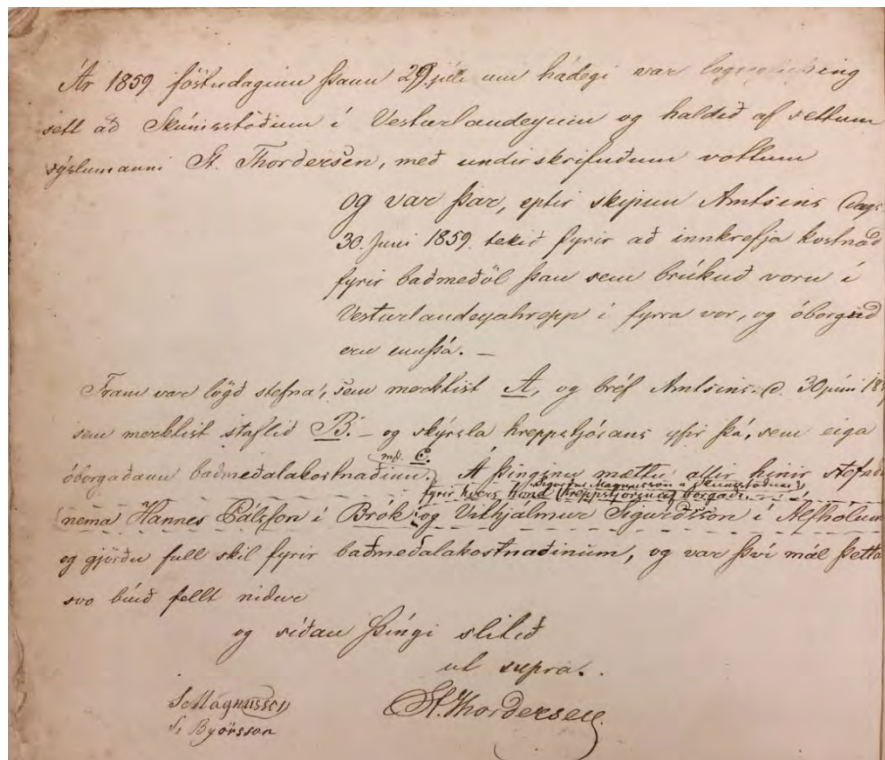 Ár 1859 föstudaginn þann 29. júli um hádegi var lögregluþing
sett að Skúmsstöðum í Vesturlandeyum og haldið af settum
sýslumanni St. Thordersen, með undirskrifuðum vottum
og var þar, eptir skipun Amtsins (dags
30. Juni 1859. tekið fyrir að innkrefja kostnað
fyrir baðmeðöl þau sem brúkuð voru í
Vesturlandeyahrepp í fyrra vor, og óborguð
eru ennþá. –
Fram var lögð stefna, sem merktist A, og bréf Amtsins d. 30 júni
sem merktist staflið B. – og skýrsla hreppstjórans yfir þá, sem eiga
mrk. C.
óborgaðann baðmeðalakostnaðinn. Á þinginu mættu allir hinir stefndu
Magnusson á Skúmsstöðum
fyrir hvers hönd hreppstjórinn borgaði
nema Hannes Pálsson í Brók og Vilhjálmur Sigurdsson í Álfhólum
og gjörðu full skil fyrir baðmeðalakostnaðinum, og var því mál þetta
svo búið fellt niður
og síðan þíngi slitið
ut supra.
S. Magnússon St. Thordersen